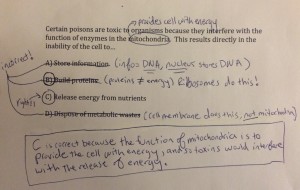 provides cell with energy
Certain poisons are toxic to organisms because they interfere with the
function of enzymes in the mitochondria. This results directly in the
inability of the cell to...
indirect!
A) Store information (info = DNA, nucleus stores DNA)
B) Build proteins (proteins ≠ energy) Ribosomes do this!
right
C) Release energy from nutrients
D) Dispose of metabolic wastes (cell membrane does this, not mitochondria)
C is correct because the function of mitochondria is to
provide the cell with energy, and so toxins would interfere
with the release of energy.